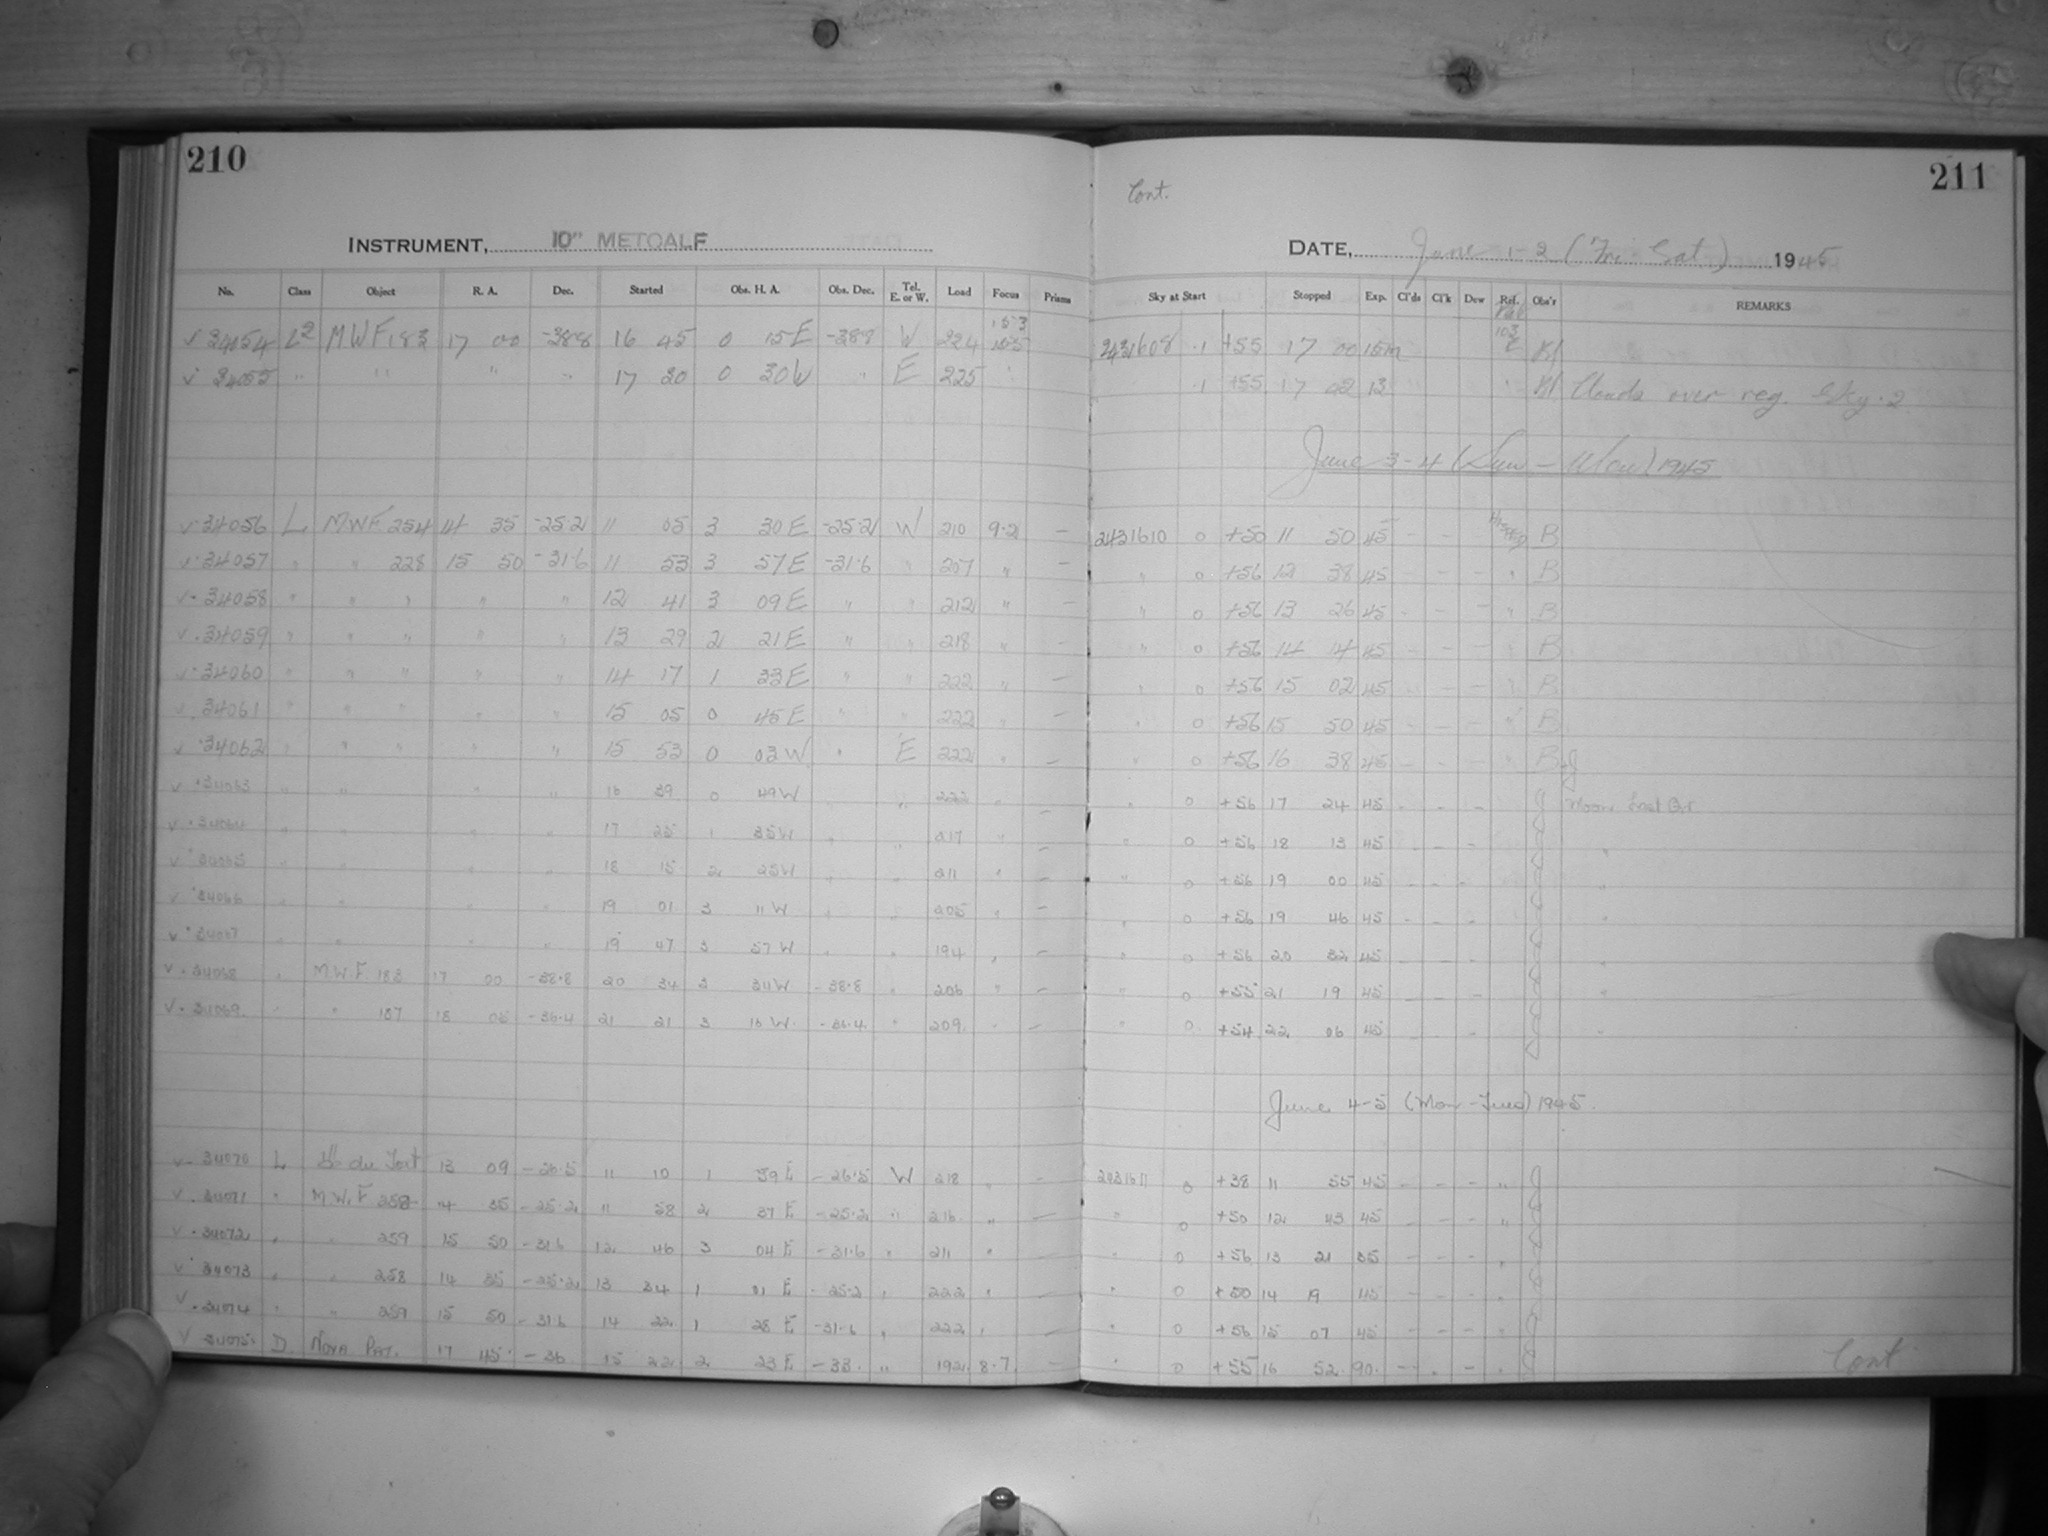 210
INSTRUMENT, 10" METCALF
No. Class Object R. A. Dec. Started Obs. H. A. Obs. Dec. Tel. E. or W. Load Focus Prisms
34054 L2 MWF 183 17 00 -38.8 16 45 0 15 E -38.8 W 224
34055 " " " " 17 20 0 20 W " E 225
34056 L MWF 254 14 35 -25.2 11 05 3 30 E -25.2 W 210 9.2 –
34057 " " 228 15 50 -31.6 11 53 3 57 E -31.6 " 207 " –
34058 " " " " " 12 41 3 09 E " " 212 " –
34059 " " " " " 13 29 2 21 E " " 218 " –
34060 " " " " " 14 17 1 33 E " " 222 " –
34061 " " " " " 15 05 0 45 E " " 222 " –
34062 " " " " " 15 53 0 03 W " E 222 " –
34063 " " " " 16 39 0 49 W " " 222 " –
34064 " " " " 17 25 1 35 W " " 217 " –
34065 " " " " 18 15 2 25 W " " 211 " –
34066 " " " " 19 01 3 11 W " " 205 " –
34067 " " " " 19 47 3 57 W " " 194 " –
34068 " M.W.F. 183 17 00 -38.8 20 34 3 34 W -38.8 " 206 " –
34069 " " 187 18 05 -36.4 21 21 3 16 W -36.4 " 209 " –
34070 L 13 09 -26.5 11 10 1 59 E -26.5 W 218 " –
34071 " M.W.F 258 14 35 -25.2 11 58 2 37 E -25.2 " 216 " –
34072 " " 259 15 50 -31.6 12 46 3 04 E -31.6 " 211 "
34073 " " 258 14 35 -25.2 13 34 1 01 E -25.2 " 222 " –
34074 " " 259 15 50 -31.6 14 22 1 28 E -31.6 " 222 " –
34075 D NOVA 17 45 -36 15 22 2 23 E -33 " 192 8.7 –
211
Cont.
DATE, June 1-2 (Fri-Sat) 1945
Sky at Start Stopped Exp. Cl'ds Cl'k Dew Ref. Obs'r REMARKS
2431608 .1 +55 17 00 15m Bl
.1 +55 17 02 12 " Bl Clouds over reg. Sky.2
June 3-4 (Sun - Mon) 1945
2431610 0 +50 11 50 45 – – B
" 0 +56 12 38 45 – – – " B
" 0 +56 13 26 45 – – – " B
" 0 +56 14 14 45 – – – " B
" 0 +56 15 02 45 – – – " B
" 0 +56 15 50 45 – – – " B
" 0 +56 16 38 45 – – – " B-J
" 0 +56 17 24 45 – – – J Moon Last Qr.
" 0 +56 18 13 45 – – – J "
" 0 +56 19 00 45 – – – J "
" 0 +56 19 46 45 – – – J "
" 0 +56 20 32 45 – – – J "
" 0 +55 21 19 45 – – – J "
" 0 +54 22 06 45 – – – J "
June 4-5 (Mon-Tues) 1945.
2431611 0 +38 11 55 45 – – – " J
" 0 +50 12 43 45 – – – " J
" 0 +56 13 21 35 – – – " J
" 0 +50 14 19 45 – – – " J
" 0 +56 15 07 45 – – – " J
" 0 +55 16 52 90 – – – " J
Cont.